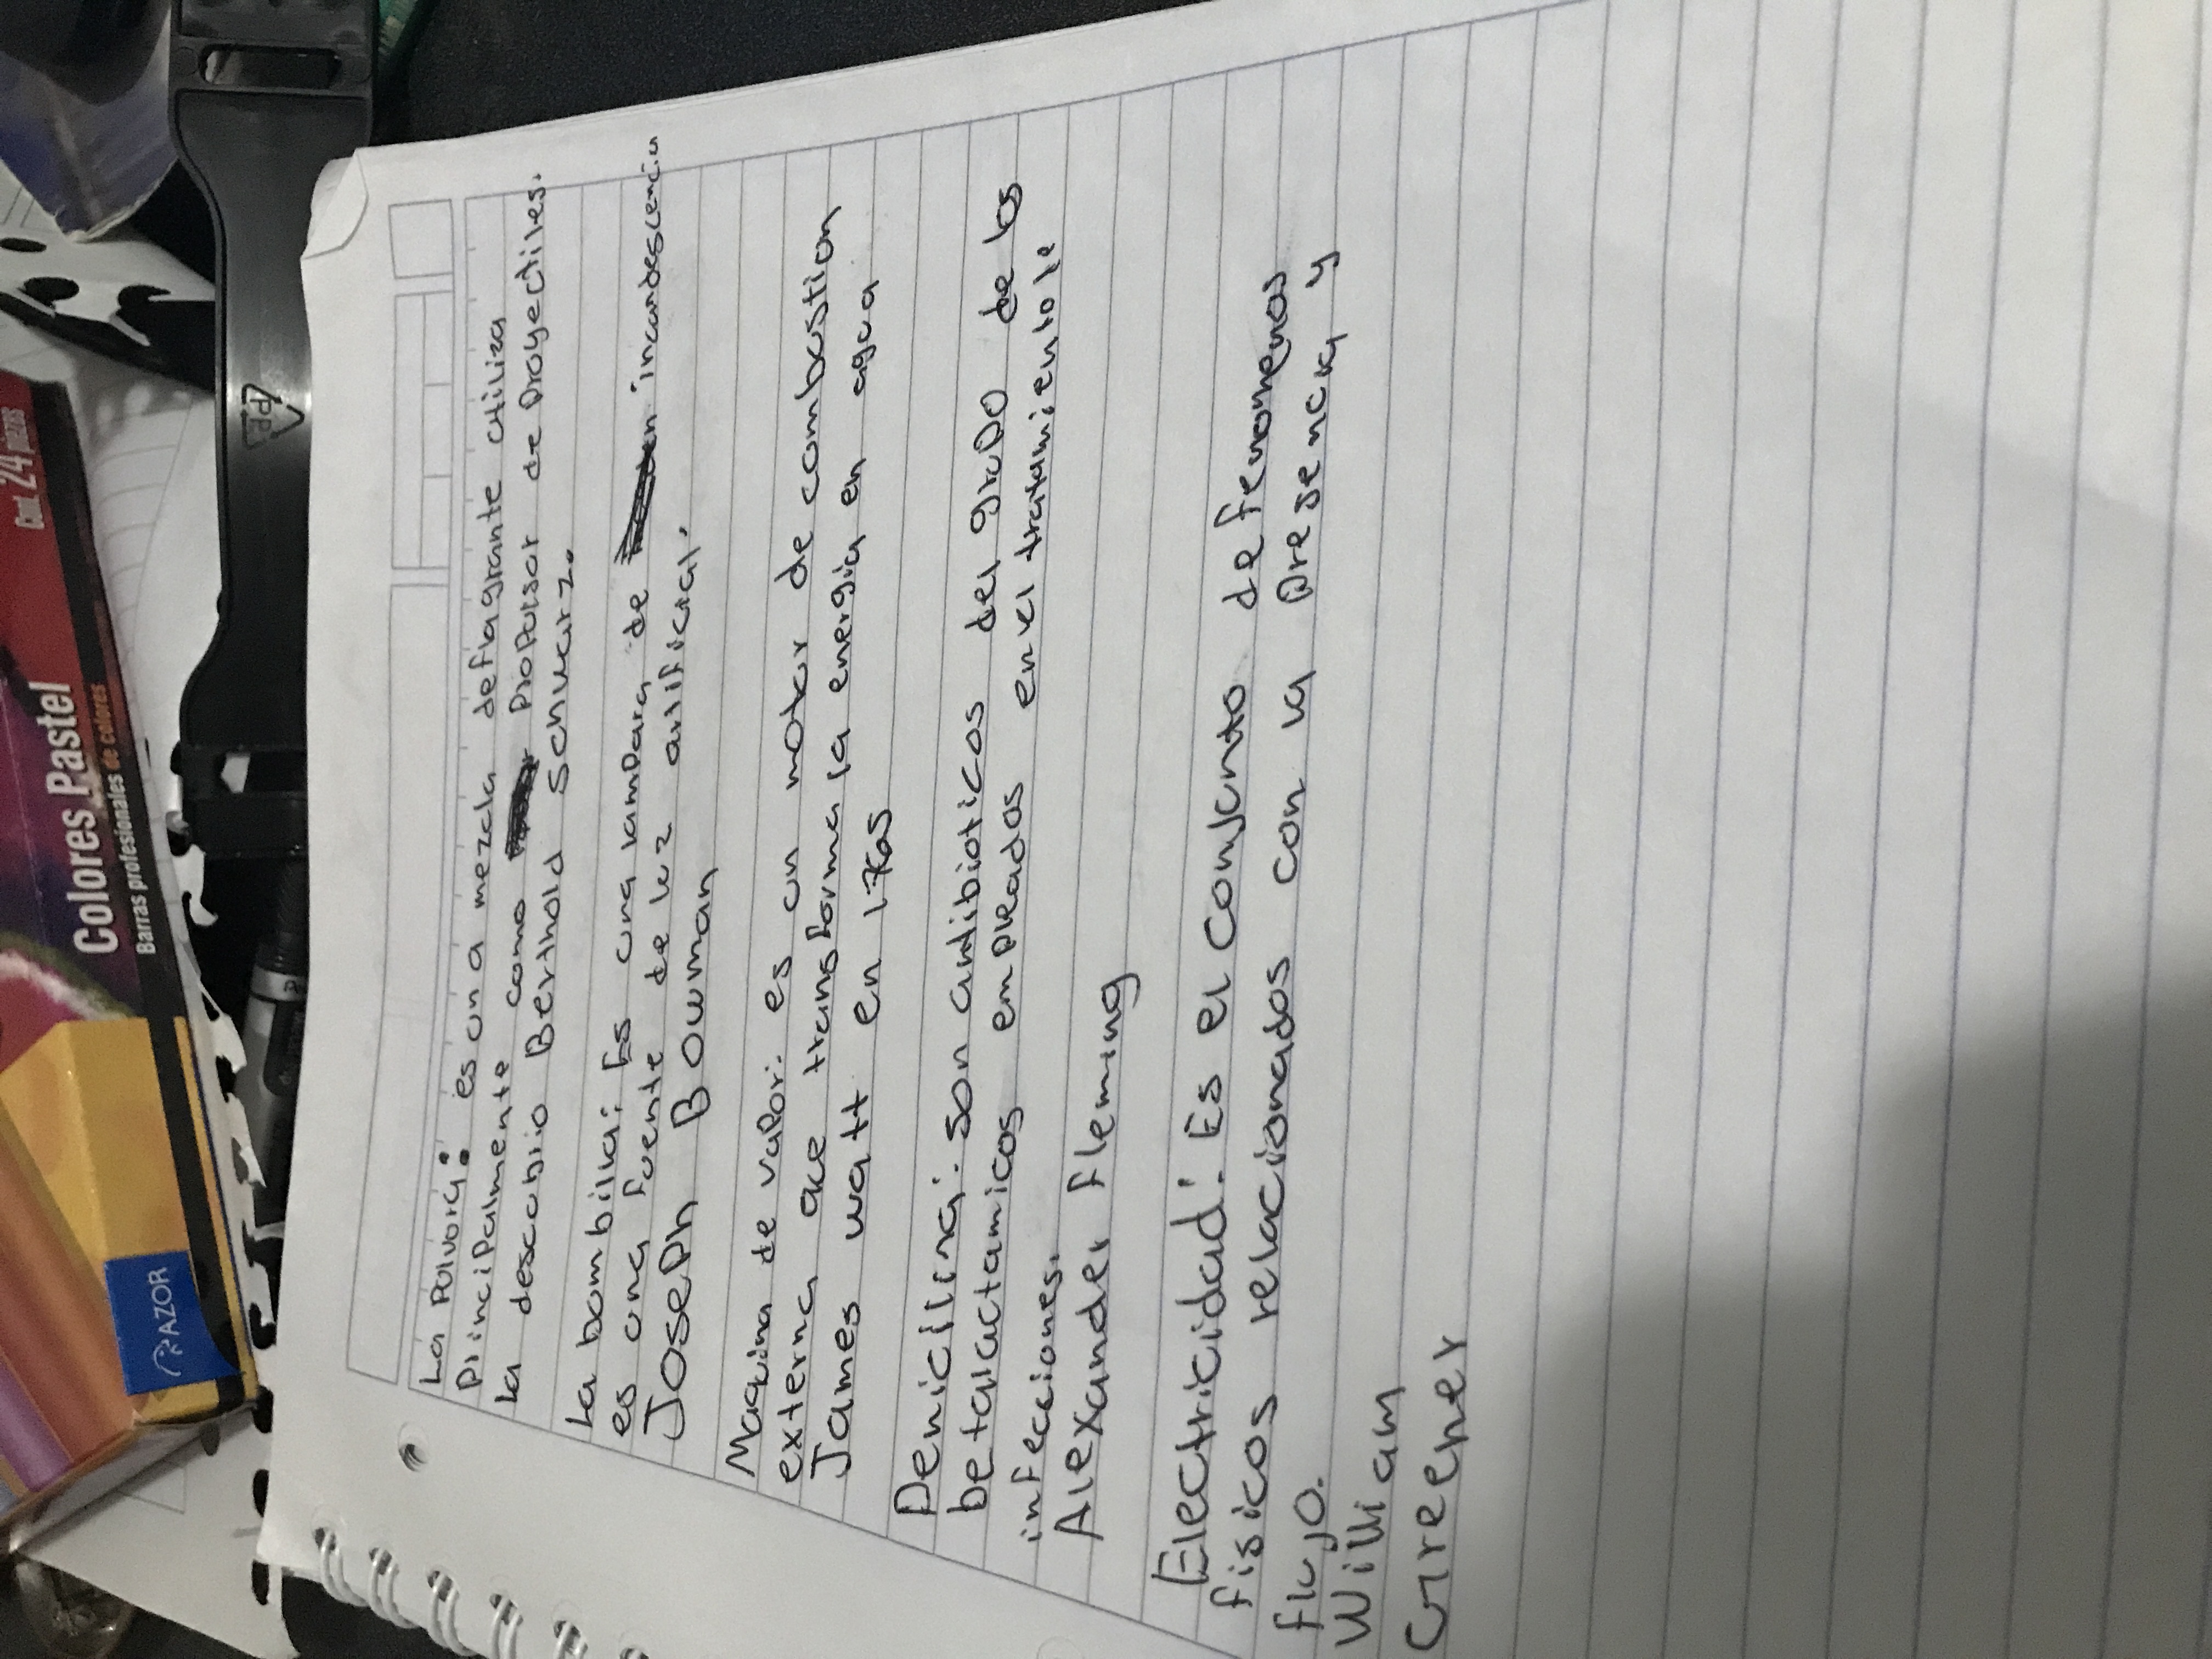 La Polvora: es un a mezcla deflagrante utiliza
Principalmente como Propulsor de Proyectiles.
la descubrio Berthold Schwarz.
La bombilla: Es una lampara de incandescencia
es una fuente de luz artificial.
Joseph Bowman
Maquina de vapor: es un motor de combustion
externa que transforma la energia en agua
James watt en 1768
Penicilina: son antibioticos del grupo de los
betalactamicos empleados en el tratamiento le
infecciones.
Alexander Fleming
Electricidad: Es el conjunto de fenomenos
fisicos relacionados con la presencia y
flujo.
William
Grener
Colores Pastel
Barras profesionales de colores
Con 24 piezas
AZOR